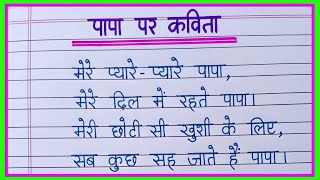 पापा पर कविता
मेरे प्यारे-प्यारे पापा,
मेरे दिल में रहते पापा।
मेरी छोटी सी खुशी के लिए,
सब कुछ सह जाते हैं पापा।